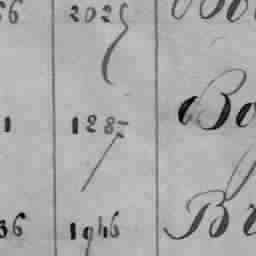 56 2025 Bo
1 1285 Bo
36 1946 Br